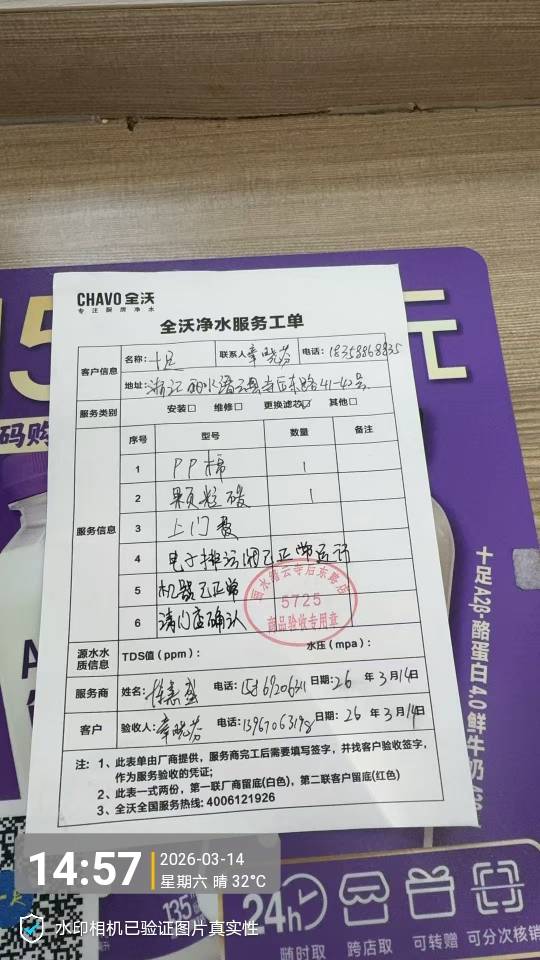 CHAVO 全沃
专注厨房净水
全沃净水服务工单
客户信息 名称：十足 联系人 章晓芬 电话：18358868835
地址：浙江丽水缙云县寺后东路41-42号
服务类别 安装□ 维修□ 更换滤芯☑ 其他□
服务信息 序号 型号 数量 备注
1 PP棉 1
2 颗粒碳 1
3 上门费
4 电子排污阀已正常运行
5 机器已正常
6 请门店确认
丽水缙云寺后东路店
5725
商品验收专用章
源水水质信息 TDS值（ppm）： 水压（mpa）：
服务商 姓名： 电话： 日期：26 年 3 月 14 日
客户 验收人：章晓芬 电话：15967063198 日期：26 年 3 月 14 日
注：1、此表单由厂商提供，服务商完工后需要填写签字，并找客户验收签字，
作为服务验收的凭证；
2、此表一式两份，第一联厂商留底(白色)，第二联客户留底(红色)
3、全沃全国服务热线：4006121926
元
码购
十足A2β-酪蛋白4.0鲜牛奶
14:57
2026-03-14
星期六 晴 32°C
水印相机已验证图片真实性
135
24h
随时取 跨店取 可转赠 可分次核销